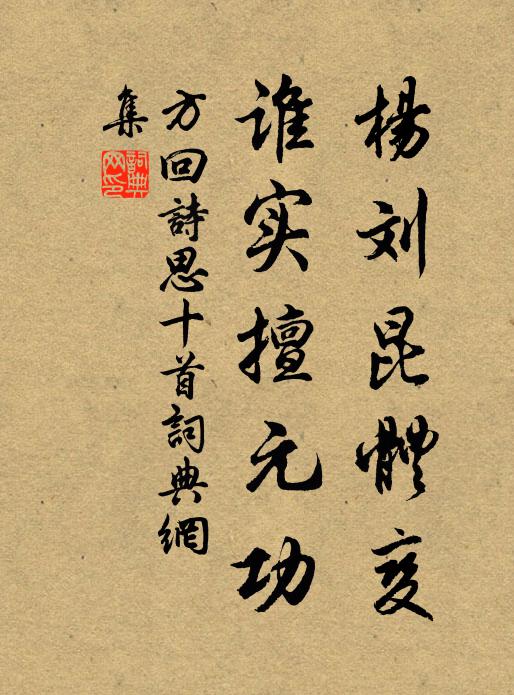 杨刘昆體变
谁实擅元功
方回詩思十首詞典網
集
詞典
网印